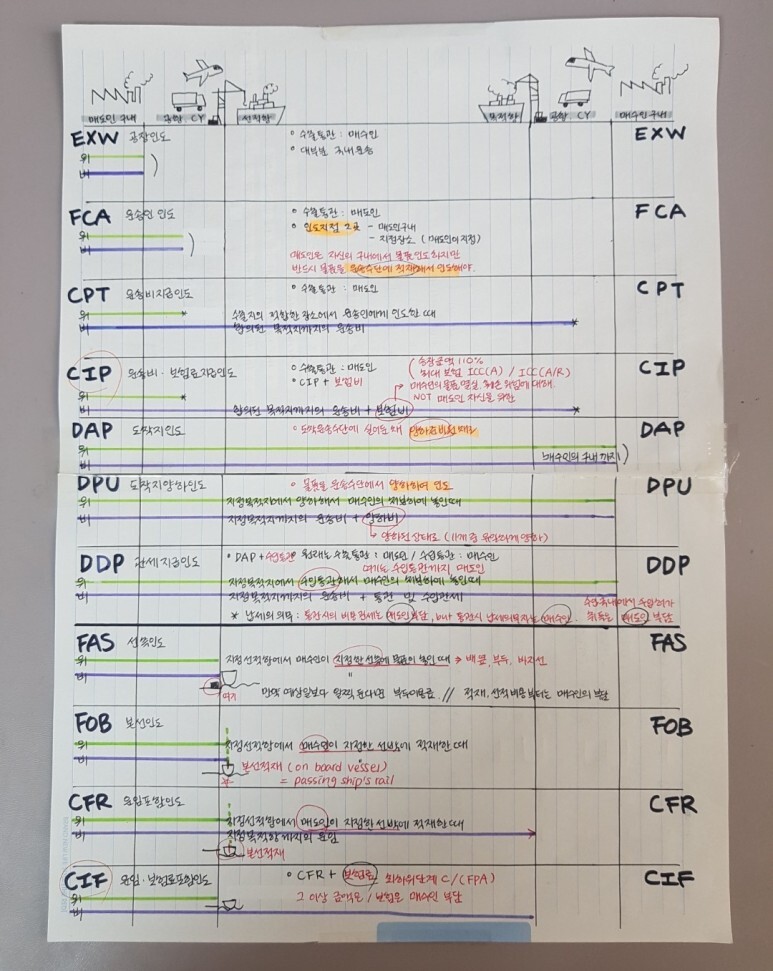 매도인구내 공항 CY 선적항 목적항 공항 CY 매수인구내
EXW 공장인도 EXW
위
비
○ 수출통관 : 매수인
○ 대부분 국내운송
FCA 운송인 인도 FCA
위
비
○ 수출통관 : 매도인
○ 인도지점 2곳 - 매도인구내
- 지정장소 (매도인이 지정)
매도인은 자신의 구내에서 물품인도하지만
반드시 물품을 운송수단에 적재해서 인도해야.
CPT 운송비지급인도 CPT
○ 수출통관 : 매도인
위 수출지의 적합한 장소에서 운송인에게 인도한 때
비 합의된 목적지까지의 운송비
CIP 운송비·보험료지급인도 CIP
○ 수출통관 : 매도인
○ CIP + 보험비
송장금액 110%
최대보험 ICC(A) / ICC(A/R)
매수인의 물품 멸실, 훼손 위험에 대해.
NOT 매도인 자신을 위한
위
비 합의된 목적지까지의 운송비 + 보험비
DAP 도착지인도 DAP
○ 도착운송수단에 실어둔 채 양하준비된 때
위
비 매수인의 구내까지)
DPU 도착지양하인도 DPU
○ 물품을 운송수단에서 양하하여 인도
위 지정목적지에서 양하해서 매수인의 처분하에 놓인때
비 지정목적지까지의 운송비 + 양하비
→ 양하된 상태로 (11개 중 유일하게 양하)
DDP 관세지급인도 DDP
○ DAP + 수입통관 원래는 수출통관 : 매도인 / 수입통관 : 매수인
여기는 수입통관까지 매도인
위 지정목적지에서 수입통관해서 매수인의 처분하에 놓인때
비 지정목적지까지의 운송비 + 통관 및 수입관세
* 납세의 의무 : 통관시의 비용관세는 매도인부담, but 통관시 납세의무자는 매수인.
위험은 매도인 부담
FAS 선측인도 FAS
위 지정선적항에서 매수인이 지정한 선측에 물품이 놓인 때 → 배 옆, 부두, 바지선
비 "
여기 만약 예상일보다 일찍 온다면 부두이용료. // 적재, 선적비용부터는 매수인의 부담
FOB 본선인도 FOB
위 지정선적항에서 매수인이 지정한 선박에 적재한 때
비 본선적재 (on board vessel)
= passing ship's rail
CFR 운임포함인도 CFR
위 지정선적항에서 매도인이 지정한 선박에 적재한 때
비 지정목적항까지의 운임
본선적재
CIF 운임·보험료포함인도 CIF
○ CFR + 보험료 최하위단계 C/(FPA)
위 그 이상 금액은 / 보험은 매수인 부담
비